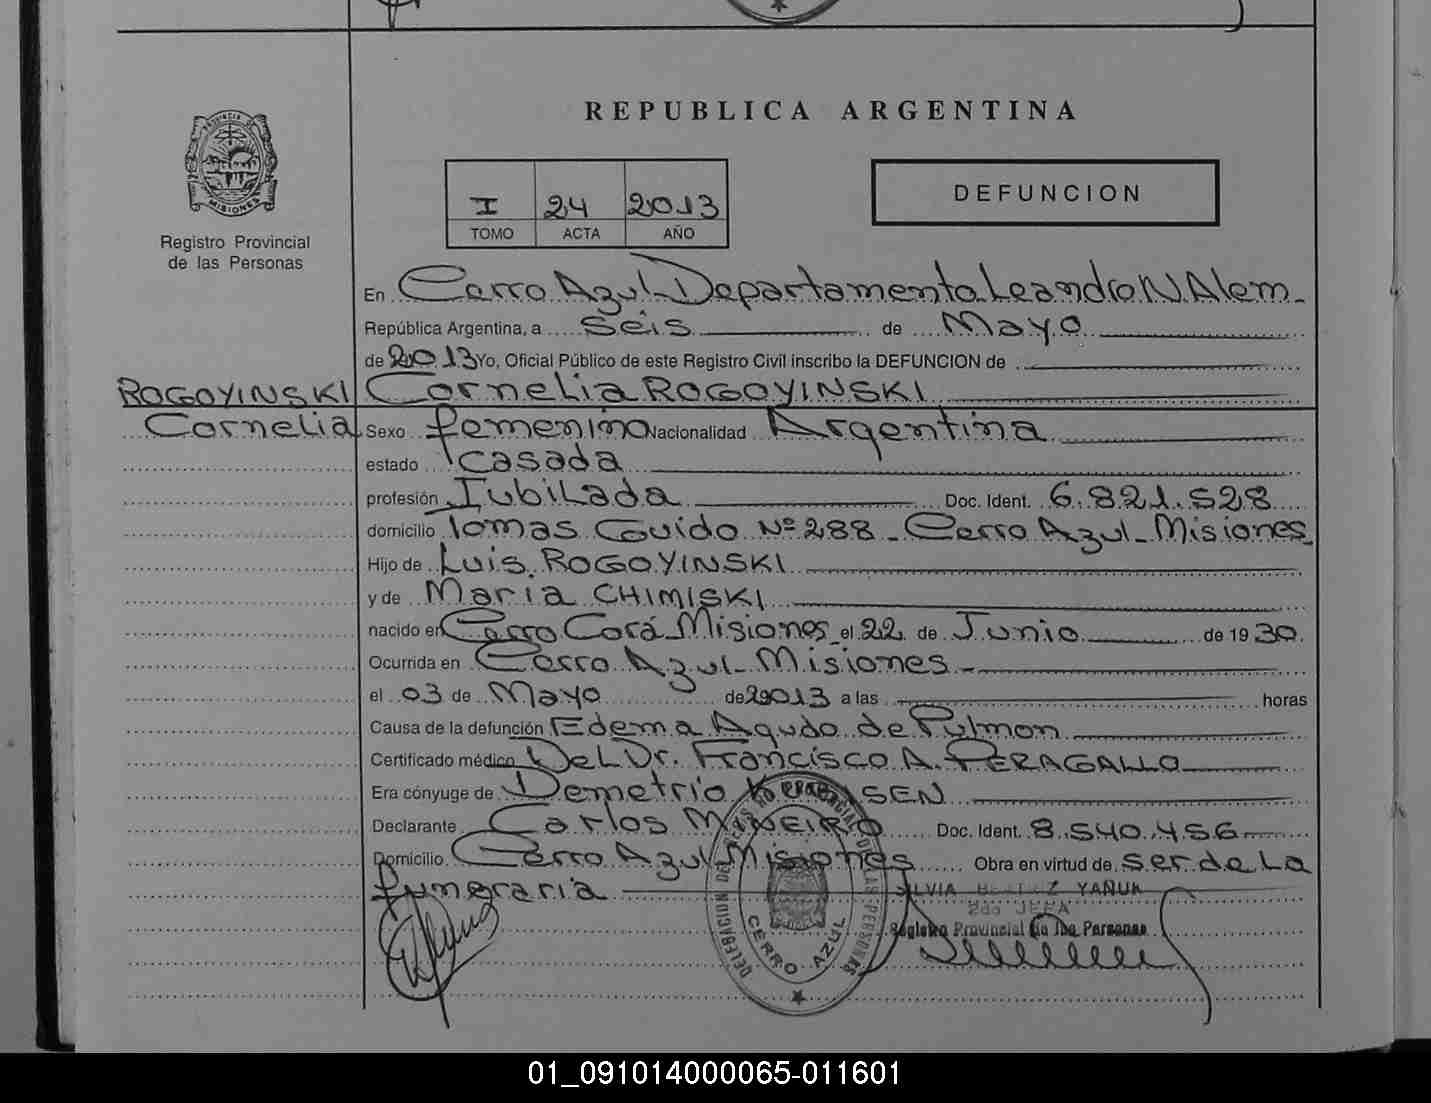 PROVINCIA DE
MISIONES
Registro Provincial
de las Personas
REPUBLICA ARGENTINA
I 24 2013
TOMO ACTA AÑO
DEFUNCION
En Cerro Azul Departamento Leandro N. Alem
República Argentina, a seis de Mayo
de 2013 Yo, Oficial Público de este Registro Civil inscribo la DEFUNCION de
ROGOYINSKI Cornelia ROGOYINSKI
Cornelia Sexo femenino Nacionalidad Argentina
estado casada
profesión Jubilada Doc. Ident. 6.821.528
domicilio Tomas Guido Nº 288 - Cerro Azul - Misiones
Hijo de Luis ROGOYINSKI
y de Maria CHIMISKI
nacido en Cerro Corá Misiones el 22 de Junio de 1930
Ocurrida en Cerro Azul - Misiones
el 03 de Mayo de 2013 a las horas
Causa de la defunción Edema Agudo de Pulmon
Certificado médico Del Dr. Francisco A. PERAGALLO
Era cónyuge de Demetrio
Declarante Carlos Doc. Ident. 8.540.456
Domicilio Cerro Azul Misiones Obra en virtud de ser de La
funeraria
YAÑUK
2do JEFA
Registro Provincial de las Personas
DELEGACION DE LAS PERSONAS
CERRO AZUL
01_091014000065-011601